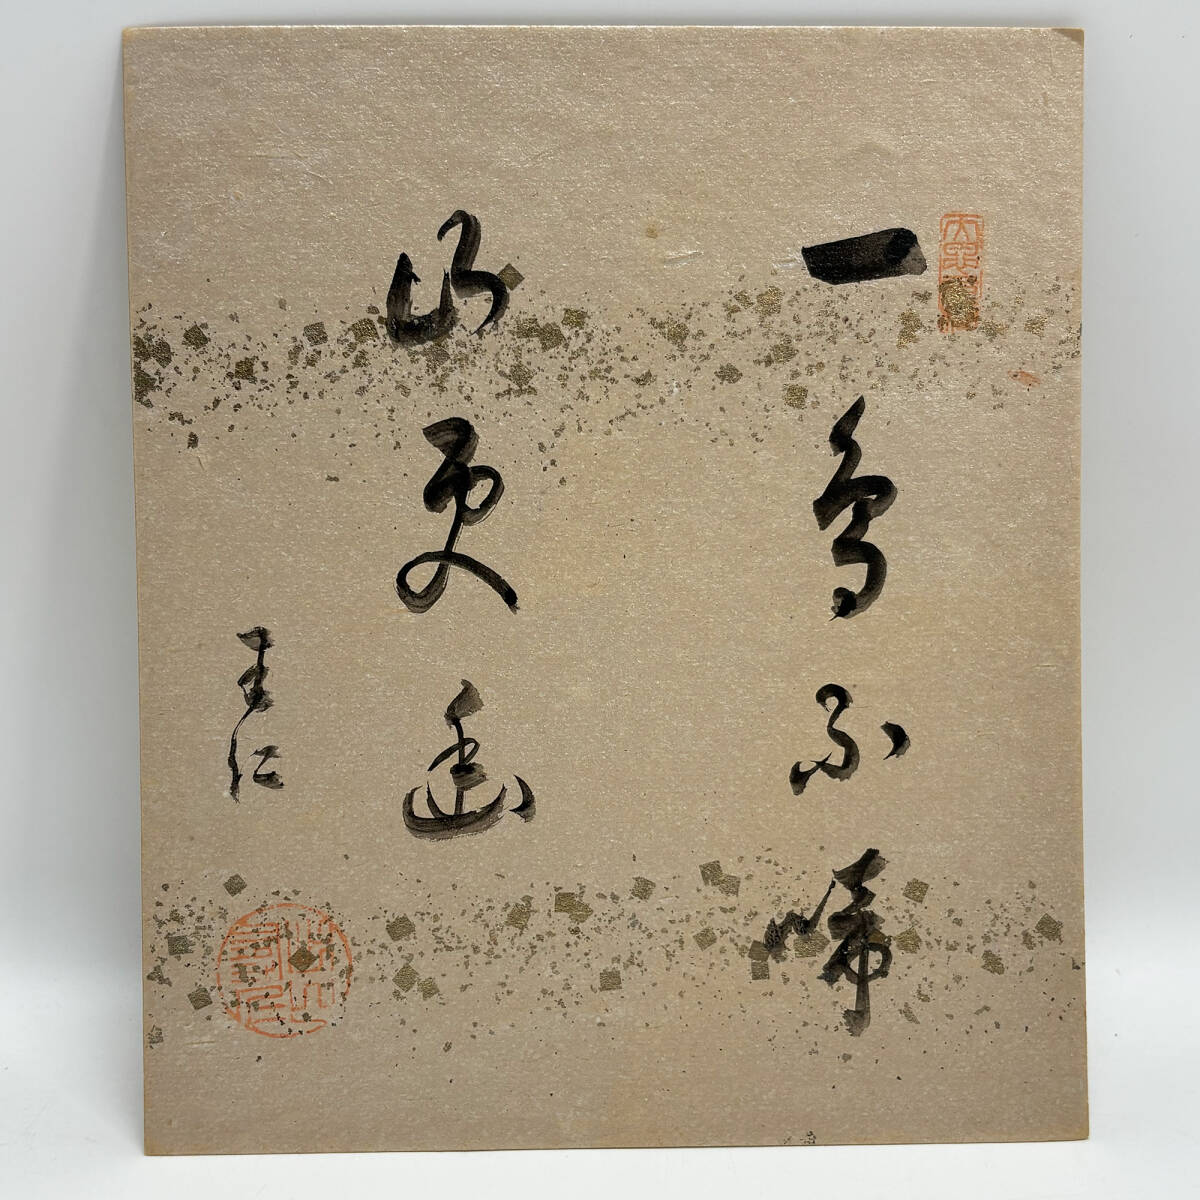 一鳥不啼
山更幽